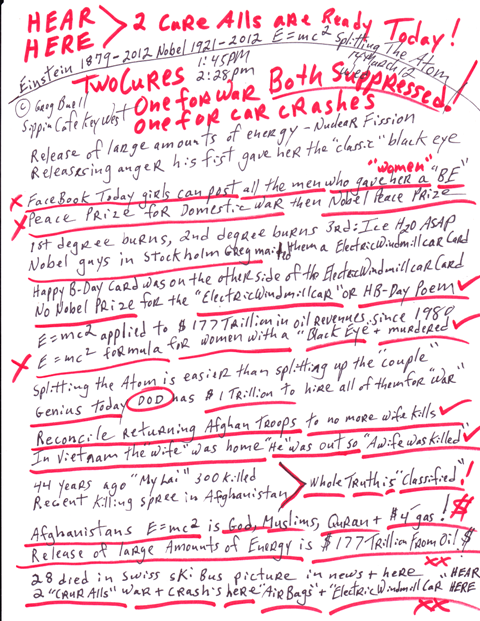 HEAR HERE > 2 Cure Alls are Ready Today!
Einstein 1879-2012 Nobel 1921-2012 E=mc² Splitting The Atom
1:45pm
2:28pm
14 March 12
© Greg Buell
Sippin Cafe Key West
Two Cures Both Suppressed!
One for war
One for car crashes
Release of large amounts of energy - Nuclear Fission
Releasersing anger his fist gave her the "classic" black eye
"women"
x FaceBook Today girls can post all the men who gave her a "BE"
x Peace Prize for Domestic war then Nobel Peace Prize
1st degree burns, 2nd degree burns 3rd: Ice H2O ASAP
Nobel guys in Stockholm Greg mailed them a ElectricWindmillcar Card
Happy B-Day Card was on the other side of the ElectricWindmillcar Card
No Nobel Prize for the "ElectricWindmillcar" or HB-Day Poem ✓
E=mc² applied to $177 Trillion in oil revenues since 1980
x E=mc² formula for women with a "Black Eye" + murdered ✓
Splitting the Atom is easier than splitting up the "couple"
Genius today DOD has $1 Trillion to hire all of them for "war"
Reconcile returning Afghan Troops to no more wife kills ✓
In Vietnam the wife "was home" "He" was out so "A wife was killed" ✓
44 years ago "My Lai" 300 killed
Recent killing spree in Afghanistan > Whole Truth is "Classified"!
Afghanistans E=mc² is God, Muslims, Quran + $4 gas! $
Release of large Amounts of Energy is $177 Trillion From Oil $
xx
28 died in Swiss ski Bus picture in news + here "HEAR
2 "Crur Alls" war + crash is here "Air Bags" + "ElectricWindmillcar" HERE
xx